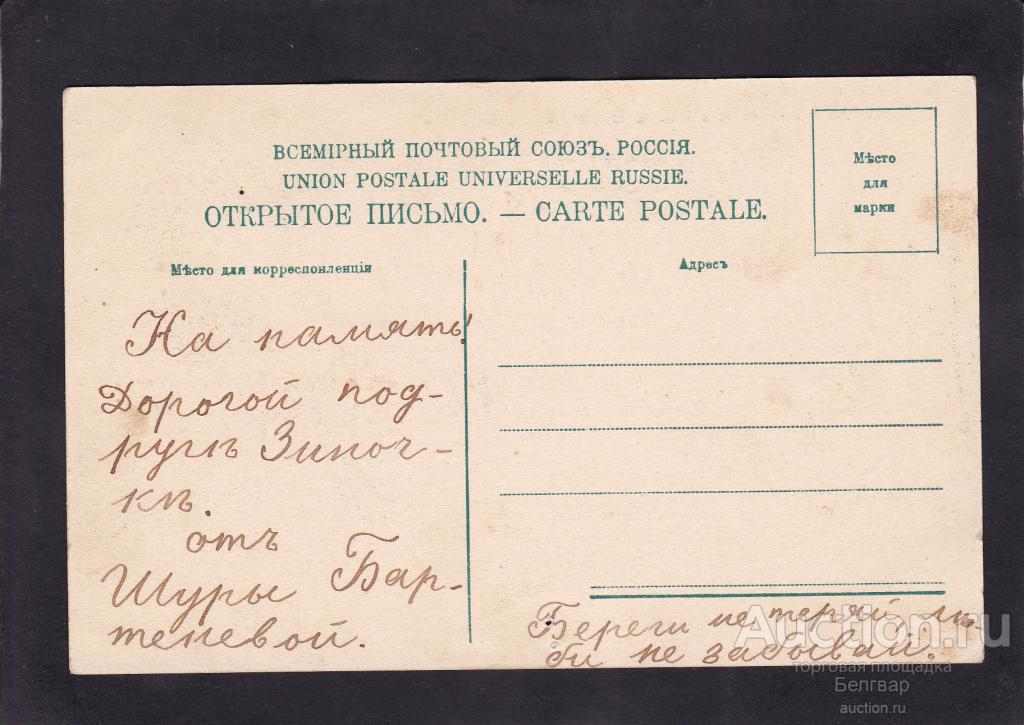 ВСЕМІРНЫЙ ПОЧТОВЫЙ СОЮЗЪ. РОССІЯ.
UNION POSTALE UNIVERSELLE RUSSIE.
ОТКРЫТОЕ ПИСЬМО. — CARTE POSTALE.
Мѣсто
для
марки
Мѣсто для корреспонленціи
Адресъ
На память!
Дорогой под-
ругѣ Зиноч-
кѣ
отъ
Шуры Бар-
теневой.
Береги не теряй, лю-
би не забывай.
Auction.ru
торговая площадка
Белгвар
auction.ru